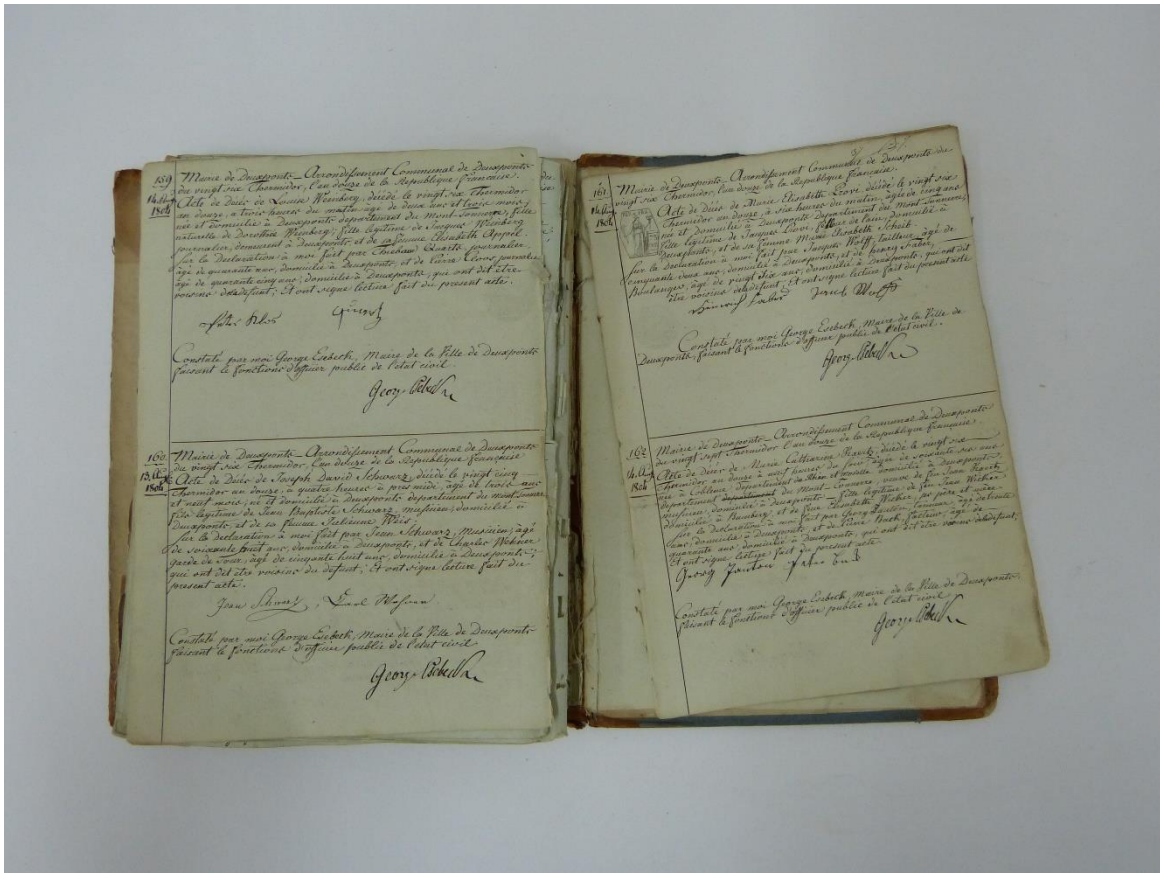 159
14 Aug
1804
Mairie de Deuxponts Arrondissement Communal de Deuxponts
du vingt six Thermidor, l'an douze de la Republique françoise.
Acte de Decès de Weinberg, decédé le vingt six Thermidor
an douze, a trois heures du matin agée de deux ans et trois mois,
née et domicilié à Deuxponts departement du Mont-Tonnerre, fille
naturelle de Dorothée Weinberg, fille legitime de Jacques Weinberg
journalier, demeurant à Deuxponts et de sa femme Elisabeth Appel.
Sur la Declaration à moi fait par Thiebaud Quartz journalier,
agé de quarante ans, domicilié à Deuxponts, et de journalier
agé de quarante cinq ans, domicilié à Deuxponts, qui ont dit être
voisins defunt, Et ont signé lecture fait du present acte.
Peter
Constaté par moi George Esebeck, Maire de la Ville de Deuxponts
faisant le fonctions d'officier publie de l'etat civil.
Georg Esebeck
160
13 A
1804
Mairie de Deuxponts Arrondissement Communal de Deuxponts
du vingt six Thermidor, l'an douze de la Republique françoise
Acte de Decès de Joseph David Schwarz, decédé le vingt cinq
Thermidor an douze, à quatre heures a pre midé, agé de trois ans
et neuf mois, né et domicilié à deuxponts departement du mont-tonnerre
fils legitime de Jean Baptiste Schwarz, musicien, domicilié à
Deuxponts et de sa femme Julienne Weis,
Sur la declaration à moi fait par Jean Schwarz, Musicien, agé
de soixante huit ans, domicilié à deuxponts, et de Charles Wehner
garde de Tour, agé de cinquante huit ans, domicilié à Deuxponts,
qui ont dit être voisins du defunt, Et ont signé lecture fait du
present acte.
Jean Schwarz Carl
Constaté par moi George Esebeck, Maire de la Ville de Deuxponts
faisant le fonctions d'officier publie de l'etat civil
Georg Esebeck
161
14 Aug
1804
Mairie de Deuxponts Arrondissement Communal de Deuxponts du
vingt six Thermidor, l'an douze de la Republique françoise.
Acte de Decès de Marie Elisabeth decédé le vingt six
Thermidor an douze, à six heures du matin, agée de cinq ans
né et domicilié à Deuxponts Departement du Mont Tonnerre,
fille legitime de Jacques de laine, domicilié à
Deuxponts, et de sa femme Marie Elisabeth Scheib
Sur la declaration à moi fait par Jacques Wolff, tailleur, agé de
cinquante deux ans, domicilié à Deuxponts, et de Henry Faber,
Boulanger, agé de vingt six ans, domicilié à Deuxponts, qui ont dit
être voisins defunt, Et ont signé lecture fait du present acte
Heinrich Faber Jacob Wolff
Constaté par moi George Esebeck, Maire de la Ville de
Deuxponts, faisant le fonctions d'officier public de l'etat civil.
Georg Esebeck
162
14 Aug
1804
Mairie de Deuxponts Arrondissement Communal de Deuxponts
du vingt sept Thermidor l'an douze de la Republique françoise.
Acte de Decès de Marie Catharine decédé le vingt six
Thermidor an douze à neuf heures du soir, agée de soixante six ans
née à Coblence departement du Rhin et
departement du Mont-Tonnerre, veuve de feu Jean
domicilié à deuxponts, fille legitime de feu Jean Weber
domicilié à Bamberg, et de feue Elisabeth Weber, ses père et mère
Sur la declaration à moi fait par George agé de trente
ans, domicilié à Deuxponts, et de Pierre agé de
quarante ans domicilié à Deuxponts, qui ont dit être voisins defunt,
Et ont signé lecture fait du present acte
Georg Peter
Constaté par moi George Esebeck, Maire de la Ville de Deuxponts,
faisant le fonctions d'officier publie de l'etat civil.
Georg Esebeck